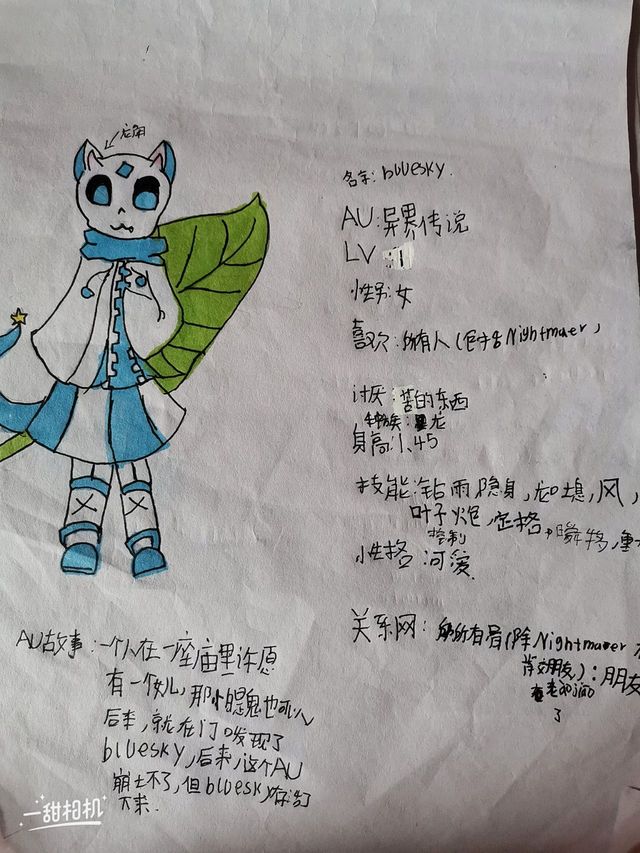 龙角
名字: bluesky.
AU:异界传说
LV
性别:女
喜欢:所有人(包括Nightmaer,
讨厌:苦的东西
种族:星龙
身高:1.45
技能:钻雨,隐身,龙息,风,
叶子炮,定格,瞬移,
控制
性格:可爱.
关系网:所有骨(除Nightmaer
朋友):朋友
了
AU故事:一个人在一座庙里许愿
有一个女儿,那小鬼也可以
后来,就在门口发现了
bluesky,后来,这个AU
崩土不了,但bluesky存活
下来.
一甜相机